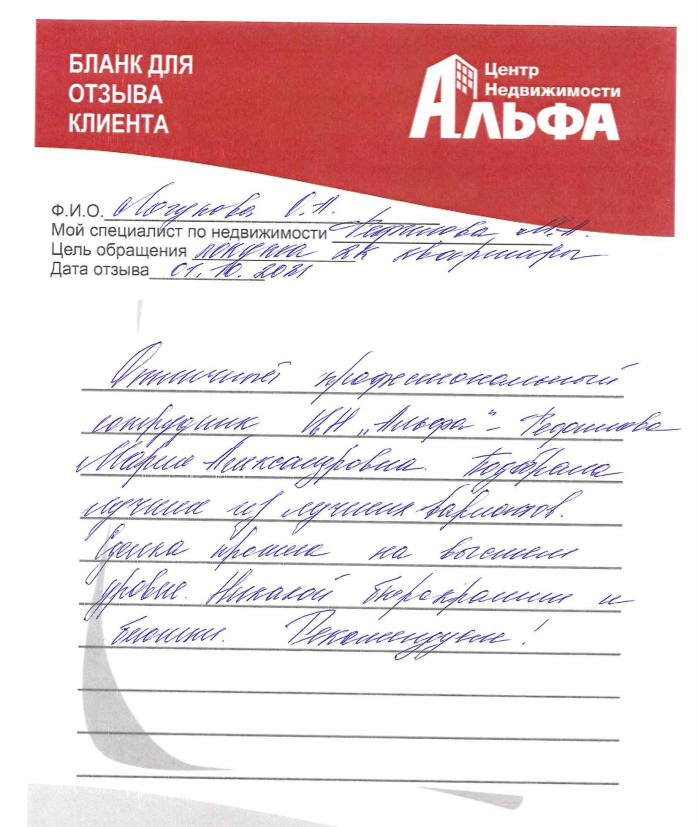 БЛАНК ДЛЯ
ОТЗЫВА
КЛИЕНТА
Центр
Недвижимости
АЛЬФА
Ф.И.О. Логунова О.А.
Мой специалист по недвижимости М.А.
Цель обращения покупка 2к квартиры
Дата отзыва 01.10.2021
Отличный профессиональный
сотрудник ЦН „Альфа" -
Мария Александровна. Подобрала
лучшие из лучших вариантов.
Сделка прошла на высшем
уровне. Никакой бюрократии и
беготни. Рекомендуем!